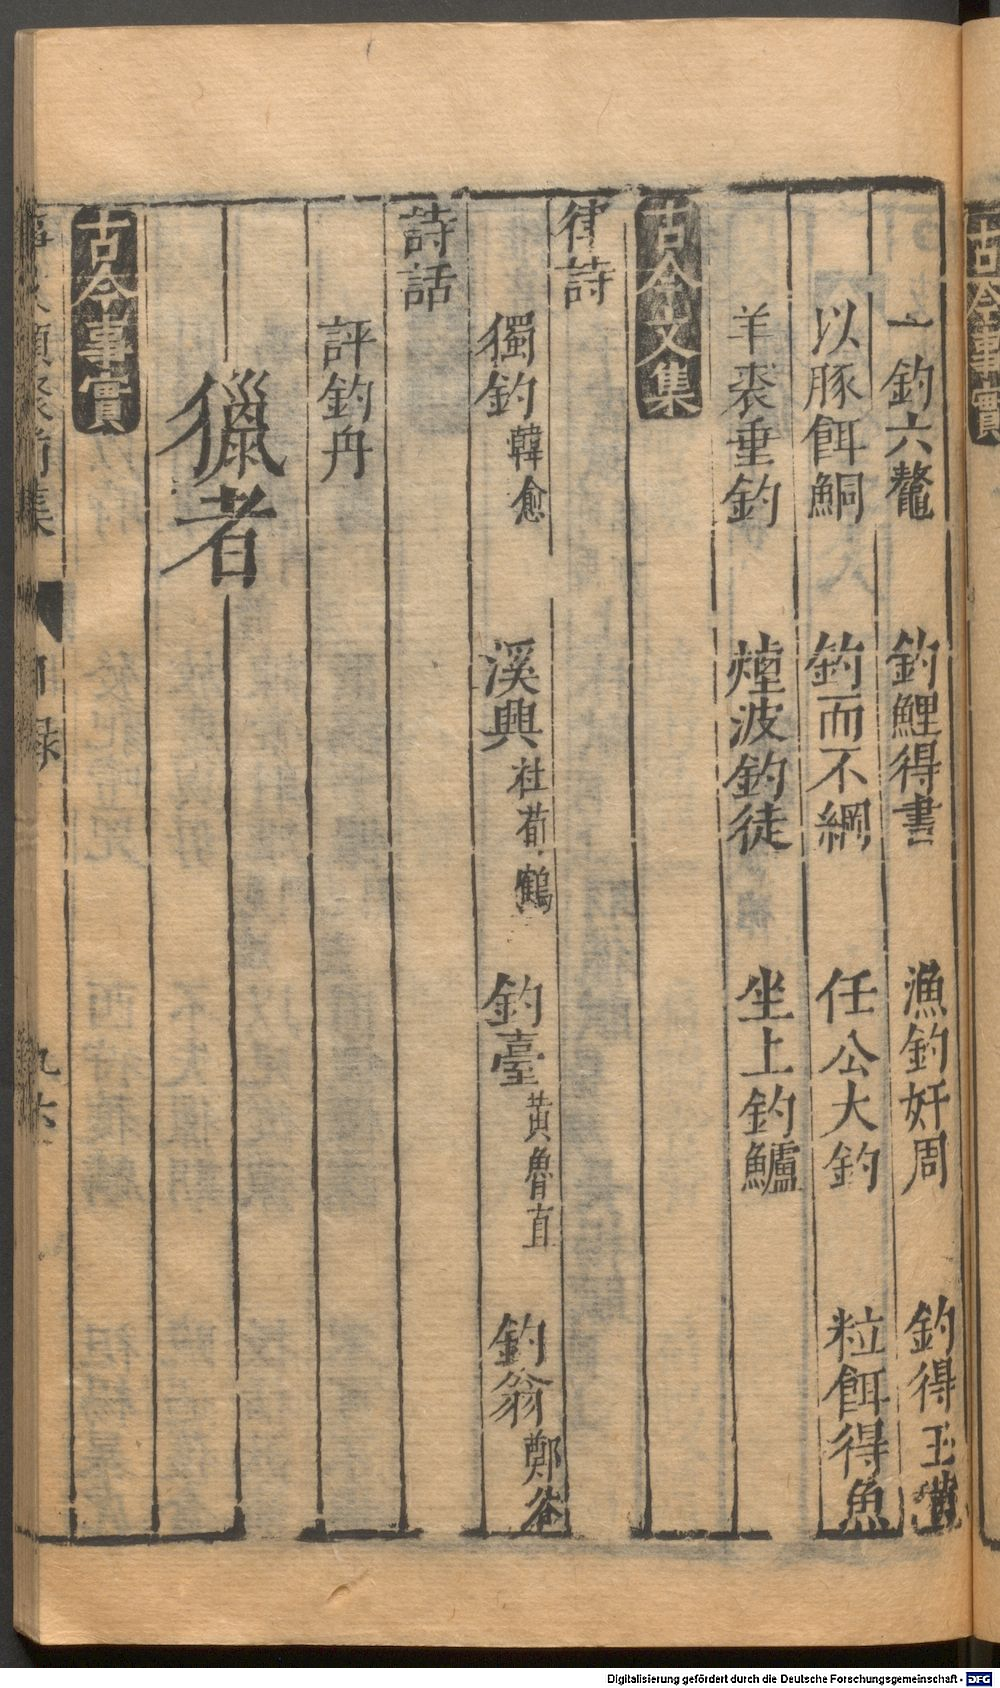 一釣六鼇　釣鯉得書　漁釣奸周　釣得玉璜
以豚餌鮦　釣而不綱　任公大釣　粒餌得魚
羊裘垂釣　煙波釣徒　坐上釣鱸
古今文集
律詩
獨釣韓愈　溪興杜荀鶴　釣臺黄魯直　釣翁鄭谷
詩話
評釣舟
獵者
古今事實
古今事實
Digitalisierung gefördert durch die Deutsche Forschungsgemeinschaft - DFG